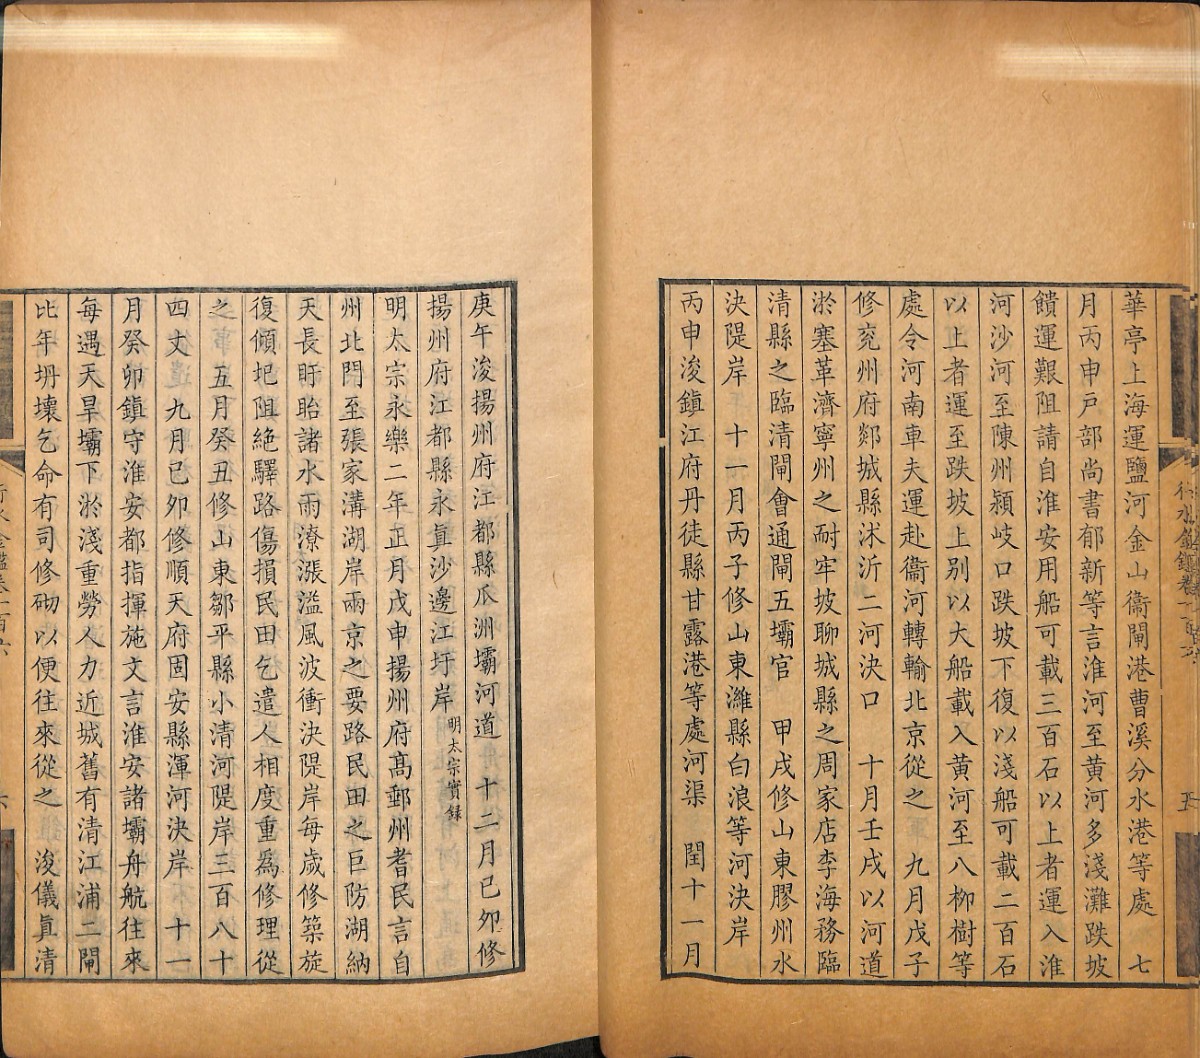 華亭上海運鹽河金山衞閘港曹溪分水港等處　七
月丙申戸部尚書郁新等言淮河至黄河多淺灘跌坡
饋運艱阻請自淮安用船可載三百石以上者運入淮
河沙河至陳州潁岐口跌坡下復以淺船可載二百石
以上者運至跌坡上別以大船載入黄河至八柳樹等
處令河南車夫運赴衞河轉輸北京從之　九月戊子
修兖州府郯城縣沭沂二河決口　十月壬戌以河道
淤塞革濟寧州之耐牢坡聊城縣之周家店李海務臨
清縣之臨清閘會通閘五壩官　甲戌修山東膠州水
決隄岸　十一月丙子修山東濰縣白浪等河決岸
丙申浚鎮江府丹徒縣甘露港等處河渠　閏十一月
五
庚午浚揚州府江都縣瓜洲壩河道　十二月已夘修
揚州府江都縣永眞沙邊江圩岸明太宗實錄
明太宗永樂二年正月戊申揚州府髙郵州耆民言自
州北門至張家溝湖岸兩京之要路民田之巨防湖納
天長盱眙諸水雨潦漲溢風波衝決隄岸每歲修築旋
復傾圯阻絶驛路傷損民田乞遣人相度重爲修理從
之　五月癸丑修山東鄒平縣小清河隄岸三百八十
四丈　九月已夘修順天府固安縣渾河決岸　十一
月癸夘鎮守淮安都指揮施文言淮安諸壩舟航往來
每遇天旱壩下淤淺重勞人力近城舊有清江浦二閘
比年坍壞乞命有司修砌以便往來從之　浚儀眞清